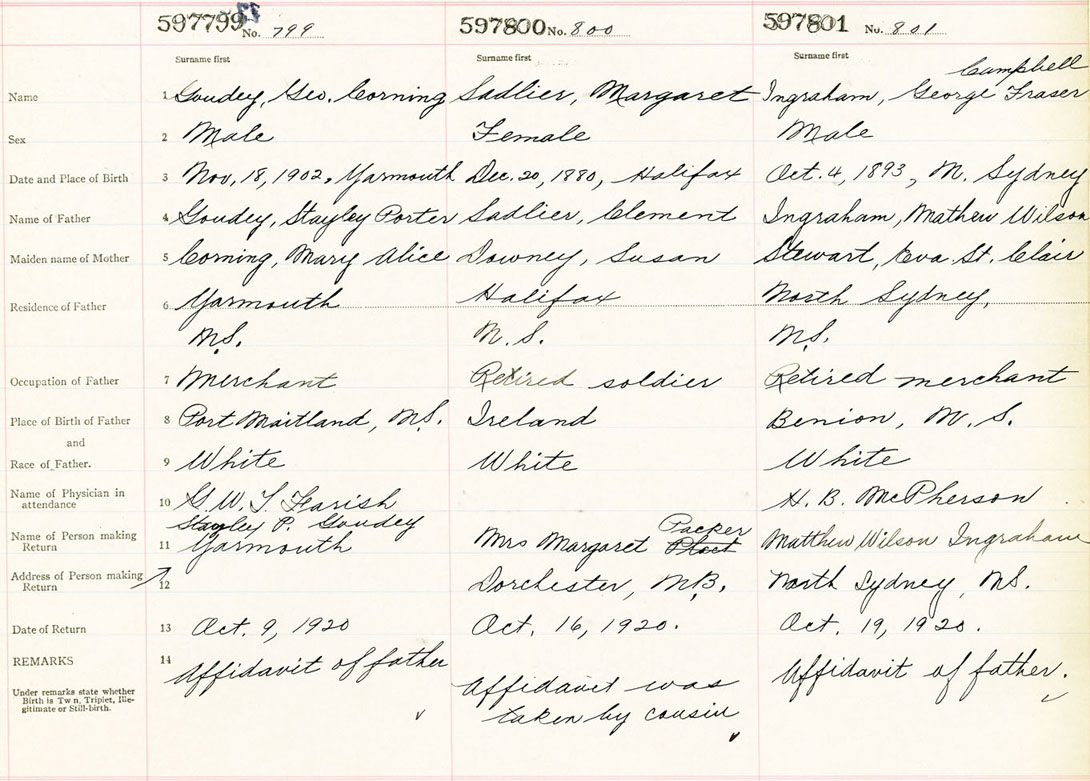 597799 No. 799 597800 No. 800 597801 No. 801
Surname first Surname first Surname first
Campbell
Name 1 Goudey, Geo. Corning Sadlier, Margaret Ingraham, George Fraser
Sex 2 Male Female Male
Date and Place of Birth 3 Nov, 18, 1902, Yarmouth Dec. 20, 1880, Halifax Oct. 4, 1893, N. Sydney
Name of Father 4 Goudey, Stayley Porter Sadlier, Clement Ingraham, Mathew Wilson
Maiden name of Mother 5 Corning, Mary Alice Downey, Susan Stewart, Eva St. Clair
Residence of Father 6 Yarmouth Halifax North Sydney,
N.S. N.S. N.S.
Occupation of Father 7 Merchant Retired soldier Retired merchant
Place of Birth of Father 8 Port Maitland, N.S. Ireland Benion, N.S.
and
Race of Father. 9 White White White
Name of Physician in attendance 10 G.W.T. Farish H. B. McPherson
Stayley P. Goudey Packer
Name of Person making Return 11 Yarmouth Mrs Margaret Matthew Wilson Ingraham
Address of Person making Return 12 Dorchester, N.B. North Sydney, N.S.
Date of Return 13 Oct. 9, 1920 Oct. 16, 1920. Oct. 19, 1920.
REMARKS 14 Affidavit of father Affidavit was Affidavit of father.
taken by cousin
Under remarks state whether
Birth is Twin, Triplet, Ille-
gitimate or Still-birth.